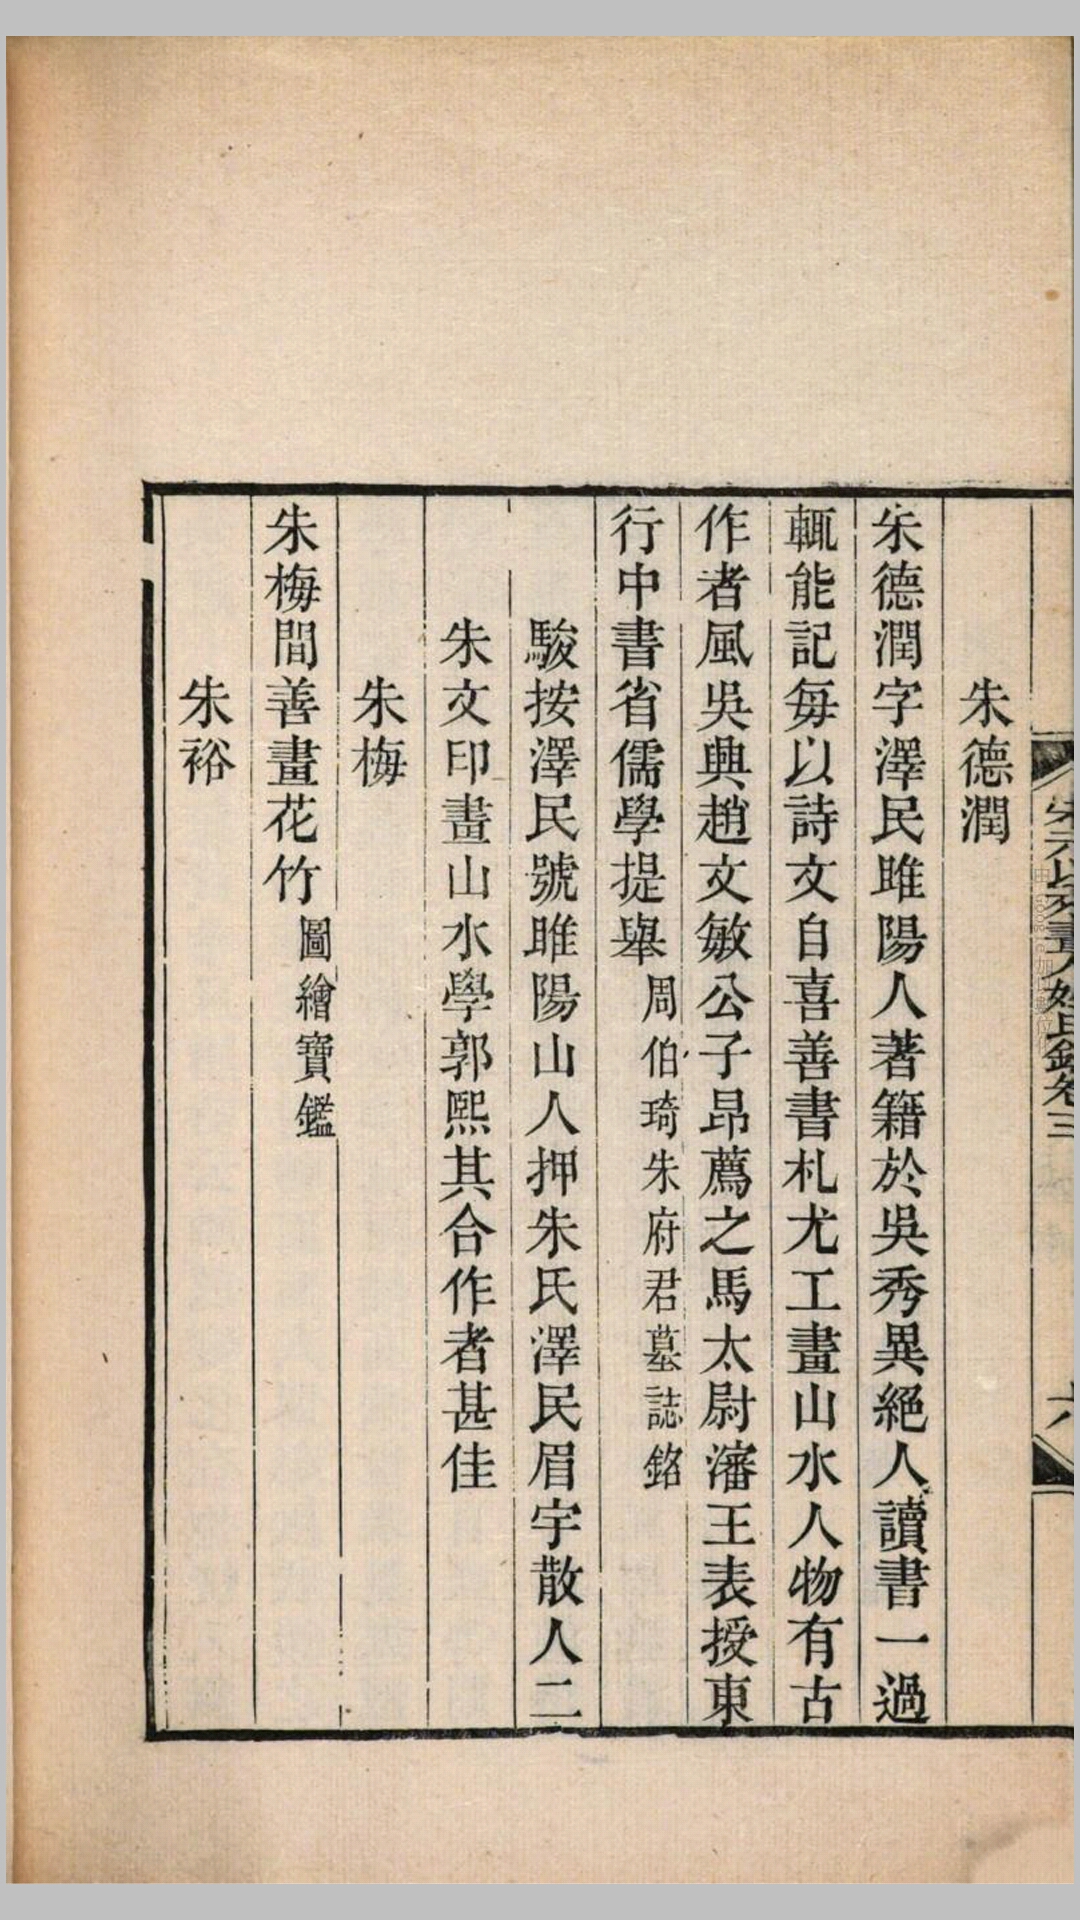 朱德潤
朱德潤字澤民睢陽人著籍於吳秀異絕人讀書一過
輒能記每以詩文自喜善書札尤工畫山水人物有古
作者風吳興趙文敏公子昂薦之馬太尉瀋王表授東
行中書省儒學提舉周伯琦朱府君墓誌銘
駿按澤民號睢陽山人押朱氏澤民眉宇散人二
朱文印畫山水學郭熙其合作者甚佳
朱梅
朱梅間善畫花竹圖繪寶鑑
朱裕